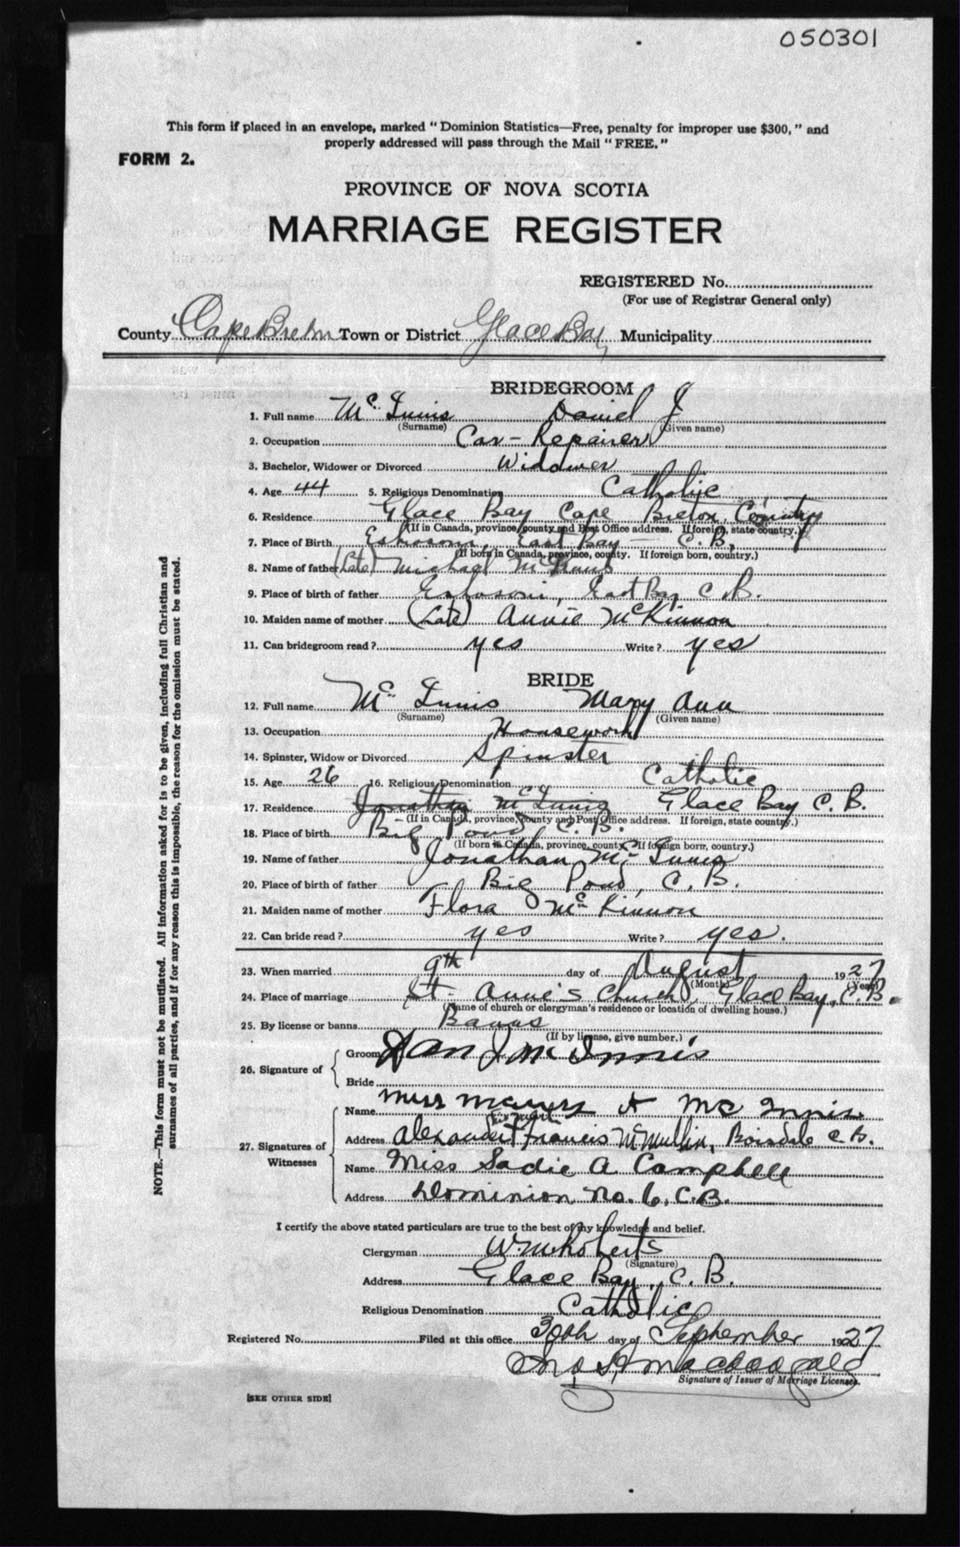 050301
This form if placed in an envelope, marked "Dominion Statistics—Free, penalty for improper use $300," and
properly addressed will pass through the Mail "FREE."
FORM 2.
PROVINCE OF NOVA SCOTIA
MARRIAGE REGISTER
REGISTERED No.
(For use of Registrar General only)
County Cape Breton Town or District Glace Bay Municipality
BRIDEGROOM
1. Full name McInnis Daniel J
(Surname) (Given name)
2. Occupation Car-Repairer
3. Bachelor, Widower or Divorced Widower
4. Age 44 5. Religious Denomination Catholic
6. Residence Glace Bay Cape Breton County
(If in Canada, province, county and Post Office address. If foreign, state country.)
7. Place of Birth Eskasoni, East Bay — C.B.
(If born in Canada, province, county. If foreign born, country.)
8. Name of father (late) Michael McInnis
9. Place of birth of father Eskasoni, East Bay C.B.
10. Maiden name of mother (Late) Annie McKinnon
11. Can bridegroom read? yes Write? yes
BRIDE
12. Full name McInnis Mary Ann
(Surname) (Given name)
13. Occupation Housework
14. Spinster, Widow or Divorced Spinster
15. Age 26 16. Religious Denomination Catholic
17. Residence Jonathan McInnis Glace Bay C.B.
(If in Canada, province, county and Post Office address. If foreign, state country.)
18. Place of birth Big Pond C.B.
(If born in Canada, province, county. If foreign born, country.)
19. Name of father Jonathan McInnis
20. Place of birth of father Big Pond, C.B.
21. Maiden name of mother Flora McKinnon
22. Can bride read? yes Write? yes.
23. When married 9th day of August 1927
(Month) (Year)
24. Place of marriage St. Anne's Church, Glace Bay, C.B.
(Name of church or clergyman's residence or location of dwelling house.)
25. By license or banns Banns
(If by license, give number.)
26. Signature of
Groom Dan J McInnis
Bride Miss Mary A McInnis
27. Signatures of Witnesses
Name
Address Alexander Francis McMullin, Boisdale C.B.
Name Miss Sadie A Campbell
Address Dominion No. 6, C.B.
I certify the above stated particulars are true to the best of my knowledge and belief.
Clergyman Wm Roberts
(Signature)
Address Glace Bay, C.B.
Religious Denomination Catholic
Registered No. Filed at this office 30th day of September 1927
Signature of Issuer of Marriage Licenses.
[SEE OTHER SIDE]
NOTE.—This form must not be mutilated. All information asked for is to be given, including full Christian and
surnames of all parties, and if for any reason this is impossible, the reason for the omission must be stated.